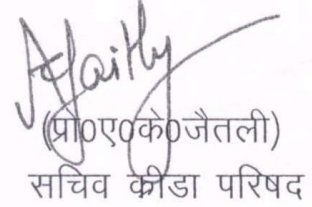 AJaitly
(प्रो0ए0के0जैतली)
सचिव क्रीडा परिषद